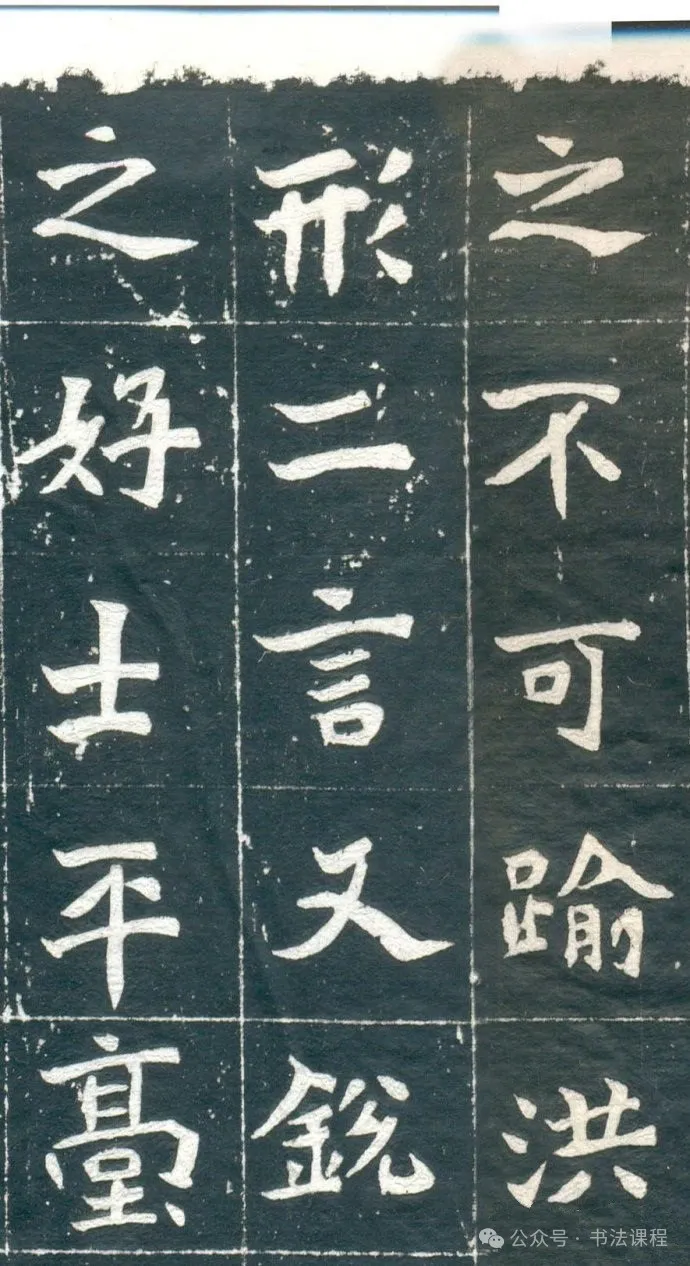 之不可踰洪
形二言又銳
之好士平臺
公众号·书法课程